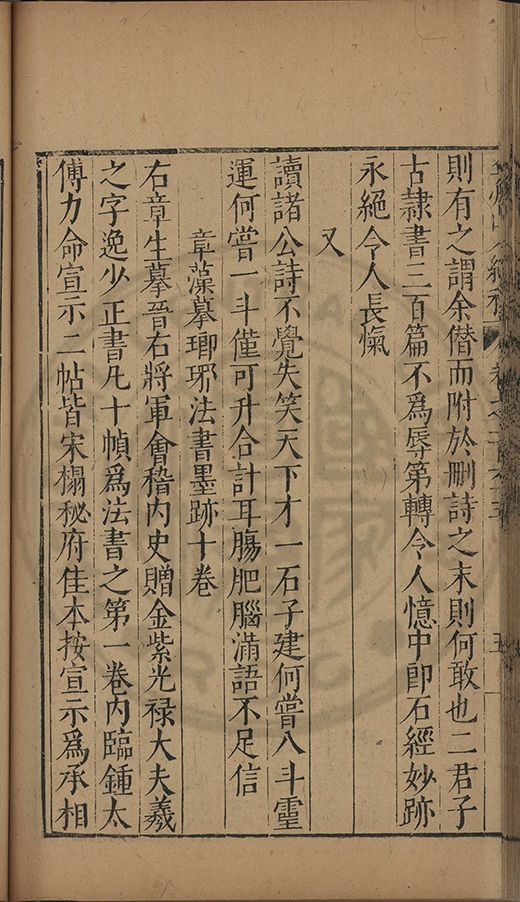 則有之謂余僭而附於删詩之末則何敢也二君子
古隸書三百篇不爲辱第轉令人憶中郎石經妙跡
永絕令人長愾
又
讀諸公詩不覺失笑天下才一石子建何嘗八斗靈
運何嘗一斗僅可升合計耳腸肥腦滿語不足信
章藻摹瑯琊法書墨跡十卷
右章生摹晉右將軍會稽内史贈金紫光祿大夫羲
之字逸少正書凡十幀爲法書之第一卷内臨鍾太
傅力命宣示二帖皆宋搨秘府佳本按宣示爲丞相